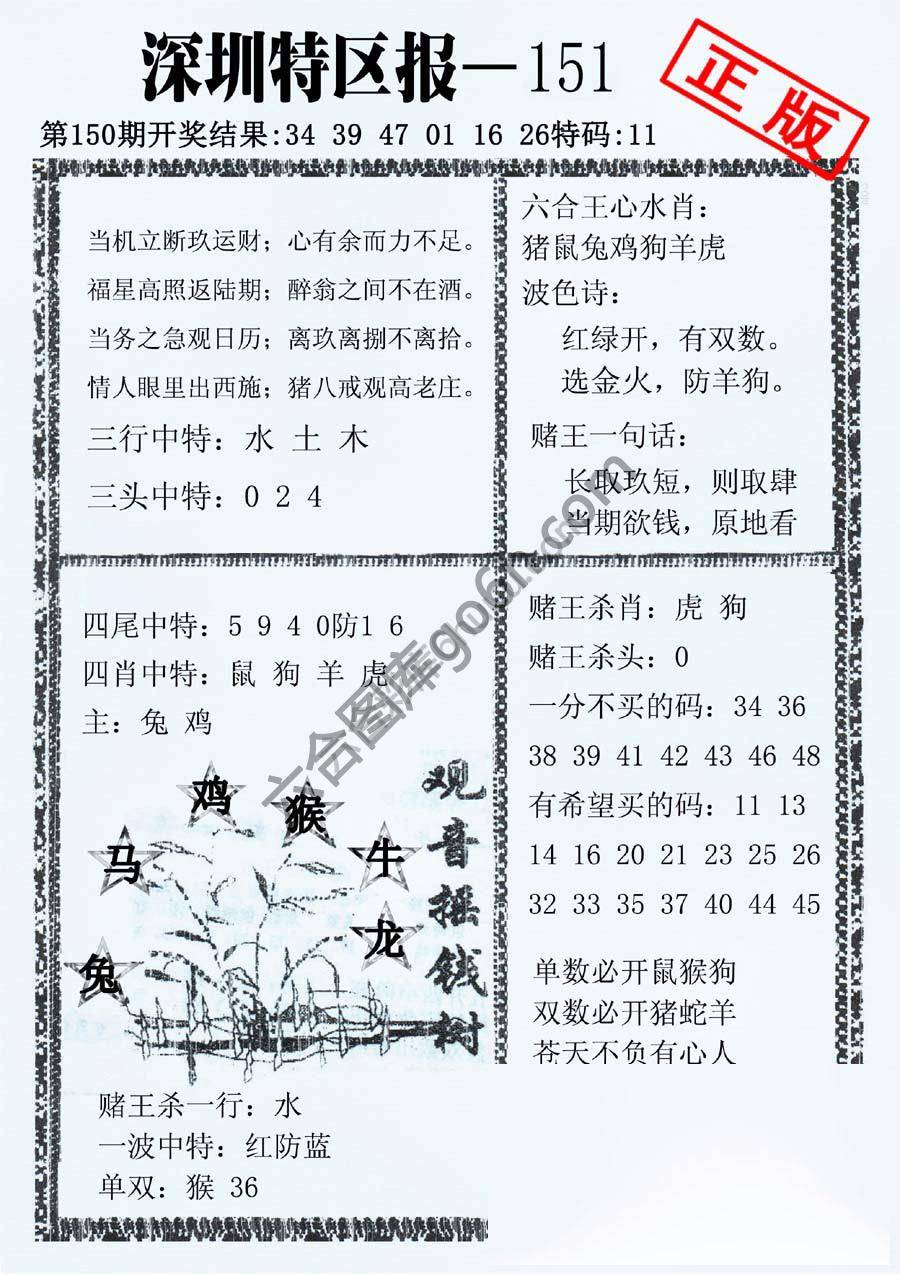 深圳特区报—151
正版
第150期开奖结果:34 39 47 01 16 26特码:11
当机立断玖运财；心有余而力不足。
福星高照返陆期；醉翁之间不在酒。
当务之急观日历；离玖离捌不离拾。
情人眼里出西施；猪八戒观高老庄。
三行中特：水 土 木
三头中特：0 2 4
六合王心水肖：
猪鼠兔鸡狗羊虎
波色诗：
红绿开，有双数。
选金火，防羊狗。
赌王一句话：
长取玖短，则取肆
当期欲钱，原地看
四尾中特：5 9 4 0防1 6
四肖中特：鼠 狗 羊 虎
主：兔 鸡
鸡
猴
马
牛
龙
兔
观音摇钱树
赌王杀一行：水
一波中特：红防蓝
单双：猴 36
赌王杀肖：虎 狗
赌王杀头：0
一分不买的码：34 36
38 39 41 42 43 46 48
有希望买的码：11 13
14 16 20 21 23 25 26
32 33 35 37 40 44 45
单数必开鼠猴狗
双数必开猪蛇羊
苍天不负有心人
六合图库go6h.com